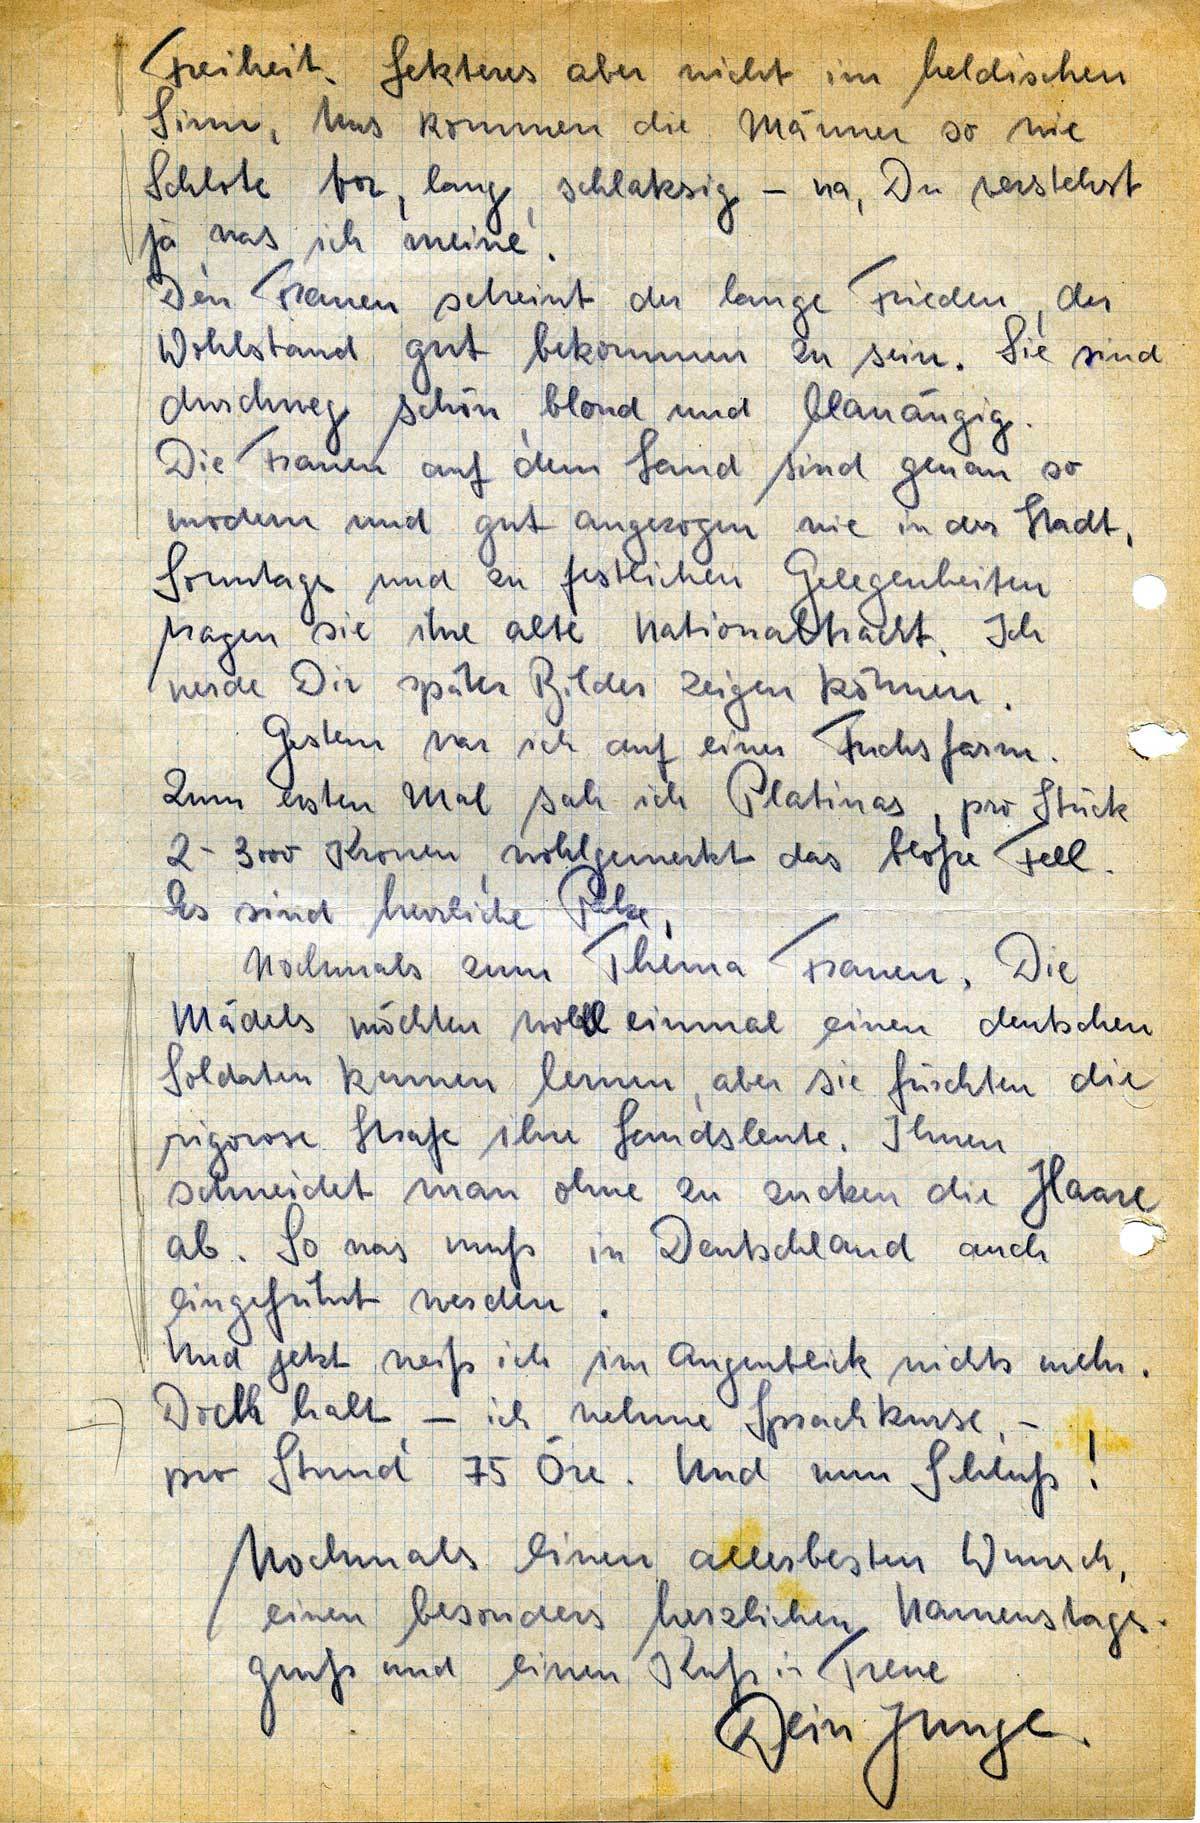 Freiheit. Letzteres aber nicht im heldischen
Sinn. Uns kommen die Männer so wie
Schlote vor, lang, schlaksig – na, Du verstehst
ja was ich meine.
Den Frauen scheint der lange Frieden, der
Wohlstand gut bekommen zu sein. Sie sind
durchweg schön, blond und blauäugig.
Die Frauen auf dem Land sind genau so
modern und gut angezogen wie in der Stadt.
Sonntags und zu festlichen Gelegenheiten
tragen sie ihre alte Nationaltracht. Ich
werde Dir später Bilder zeigen können.
Gestern war ich auf einer Fuchsfarm.
Zum ersten Mal sah ich Platinas, pro Stück
2-3000 Kronen, wohlgemerkt das bloße Fell.
Es sind herrliche Pelze.
Nochmals zum Thema Frauen. Die
Mädels möchten wohl einmal einen deutschen
Soldaten kennen lernen, aber sie fürchten die
rigorose Strafe ihre Landsleute. Ihnen
schneidet man ohne zu zucken die Haare
ab. So was muß in Deutschland auch
eingeführt werden.
Und jetzt weiß ich im Augenblick nichts mehr.
Doch halt – ich nehme Sprachkurse, –
pro Stund 75 Öre. Und nun Schluß!
Nochmals einen allerbesten Wunsch,
einen besonders herzlichen Namenstags-
gruß und einen Kuß in Treue
Dein Junge.